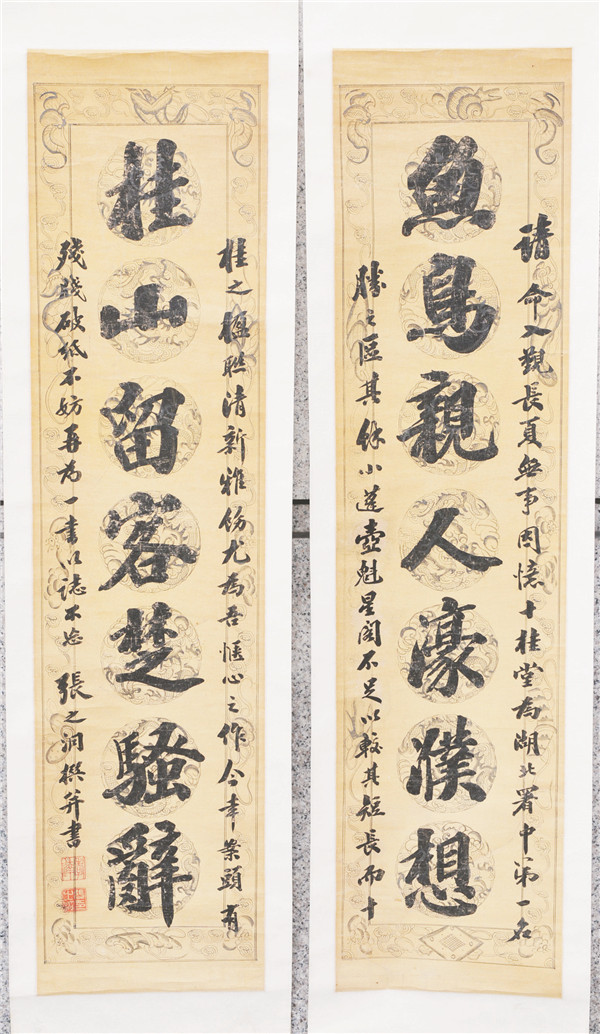 請命入覲長夏無事因憶十桂堂為湖北署中第一名
魚鳥親人濠濮想
勝之區其餘小蓬壺魁星閣不足以較其短長而十
桂之楹聯清新雅飭尤為吾愜心之作今年案頭有
桂山留客楚騷辭
殘牋破紙不妨再為一書以誌不忘 張之洞撰并書